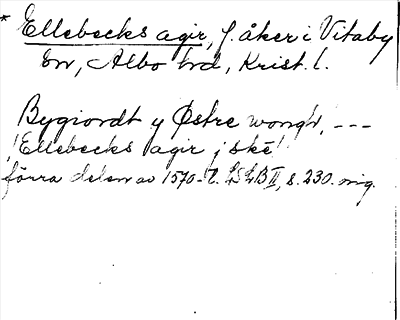 * Ellebecks agir, f. åker i Vitaby
sn, Albo hd, Krist. l.
Bygiordt y Østre wongh, ---
"Ellebecks agir j skē"
förra delen av 1570-t. LSLB II, s. 230. orig.